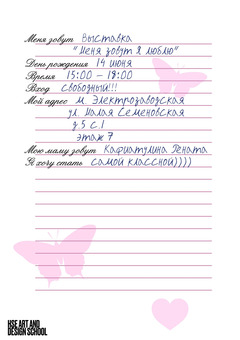 Меня зовут Выставка
"Меня зовут Я люблю"
День рождения 14 июня
Время 15:00 – 18:00
Вход свободный!!!
Мой адрес м. Электрозаводская
ул. Малая Семеновская
д 5 с 1
этаж 7
Мою маму зовут Кафиатулина Рената
Я хочу стать самой классной))))
HSE ART AND
DESIGN SCHOOL